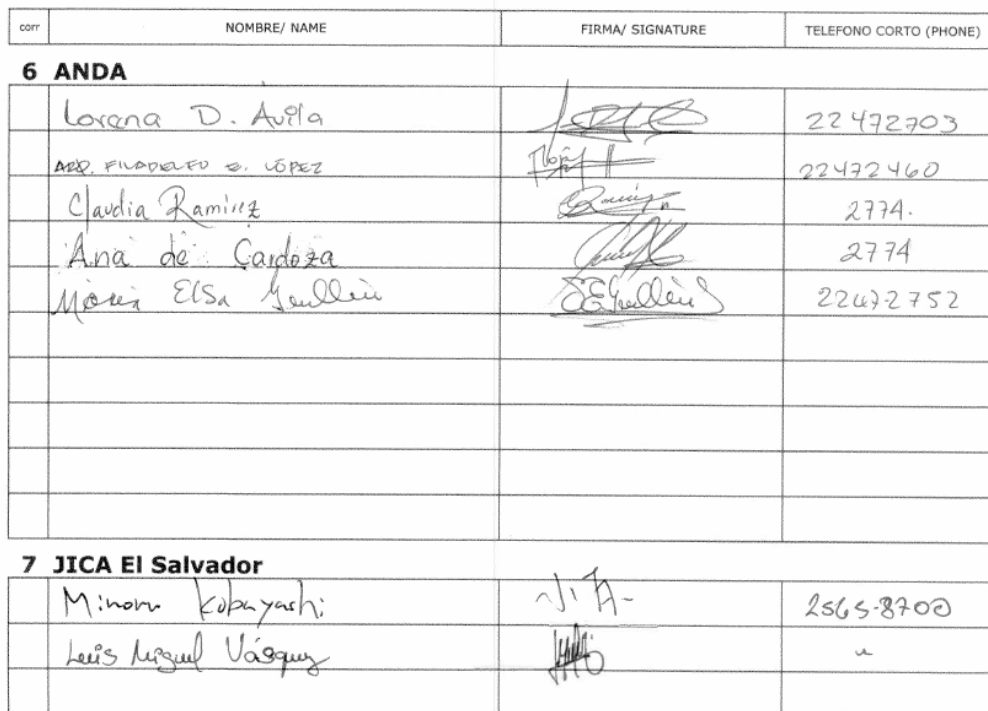 corr NOMBRE/ NAME FIRMA/ SIGNATURE TELEFONO CORTO (PHONE)
6 ANDA
Lorena D. Avila 22472703
ARQ. FILADELFO E. LÓPEZ 22472460
Claudia Ramírez 2774.
Ana de Cardoza 2774
Elsa 22472752
7 JICA El Salvador
Minoru Kobayashi 2565-8700
Luis Miguel Vásquez "